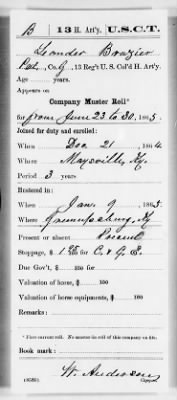 B 13 H. Art'y. U.S.C.T.
Leander Brazier
Pvt., Co. G, 13 Reg't U. S. Col'd H. Art'y.
Age years.
Appears on
Company Muster Roll*
for from June 23 to 30, 1865.
Joined for duty and enrolled:
When Dec. 21, 1864
Where Maysville, Ky.
Period 3 years
Mustered in:
When Jan. 9, 1865
Where Ky
Present or absent Present
Stoppage, $ for C. & G. E.
Due Gov't, $ 100 for
Valuation of horse, $ 100
Valuation of horse equipments, $ 100
Remarks:
* First current roll. No muster-in roll of this company on file.
Book mark:
W. Anderson
Copyist.